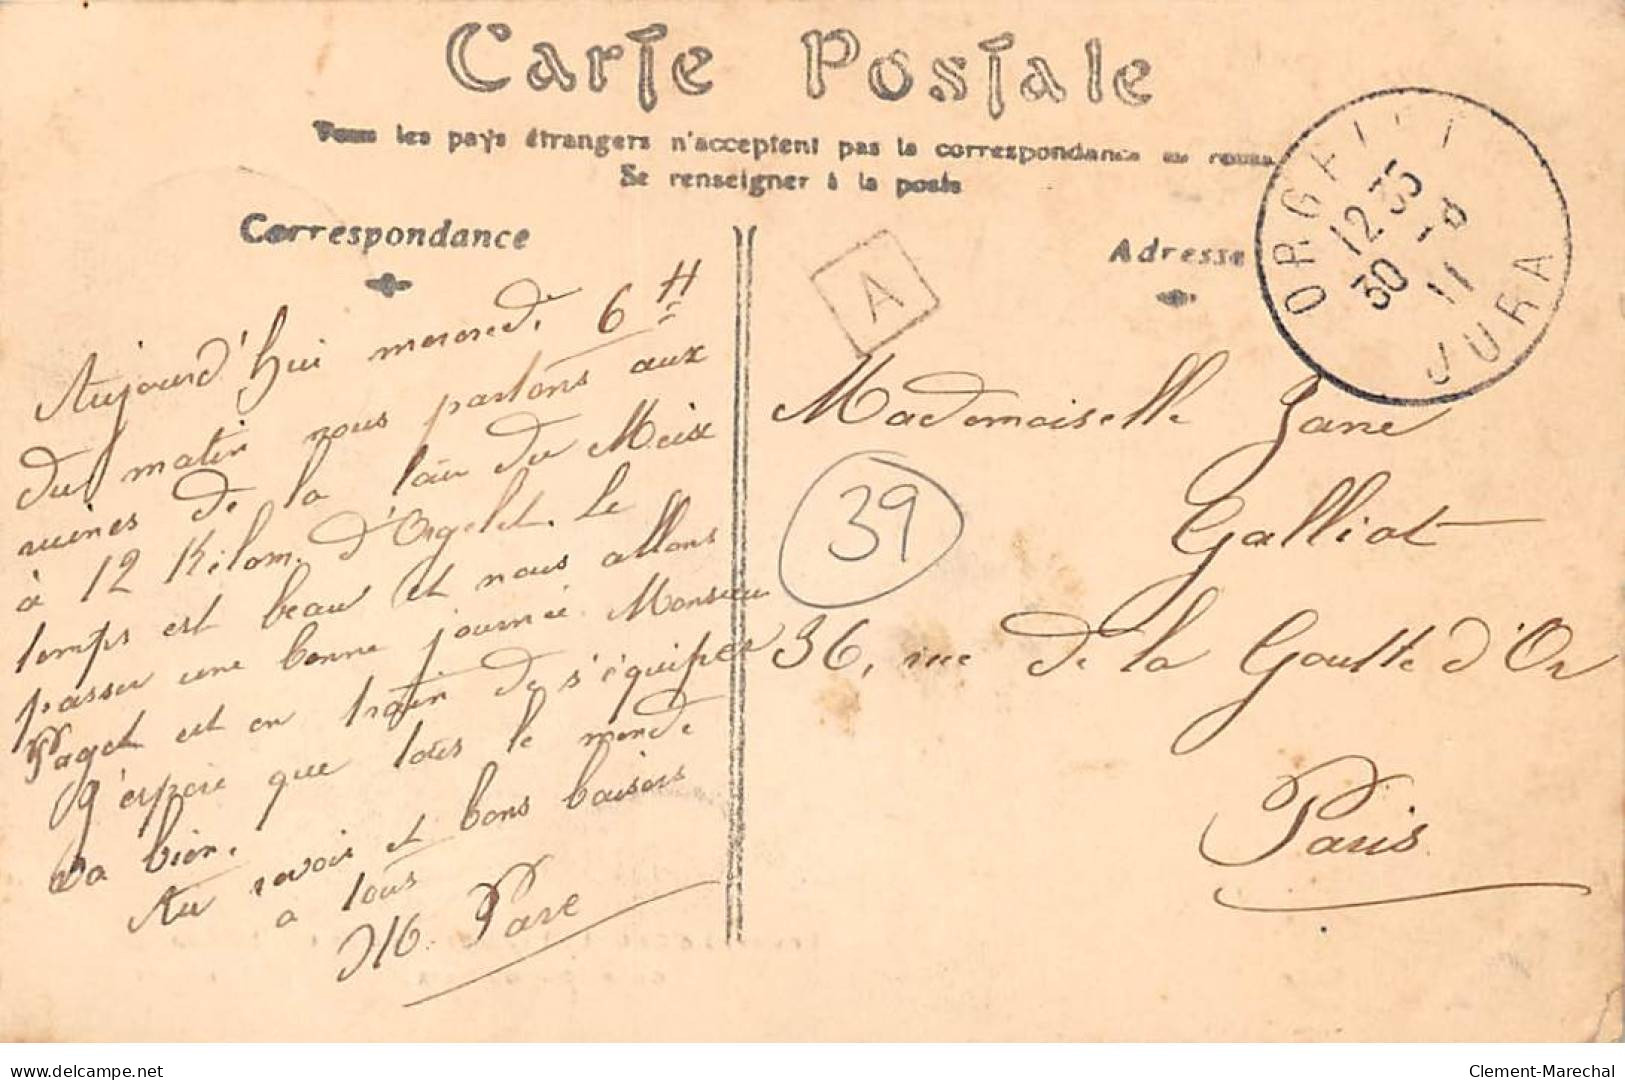 Carte Postale
Tous les pays étrangers n'acceptent pas la correspondance au recto
Se renseigner à la poste
Correspondance
Adresse
A
ORGELET
12 35
30 - 8
11
JURA
Aujourd'hui mercredi 6 H
du matin nous partons aux
ruines de la tour du Meix
à 12 Kilom. d'Orgelet. Le
temps est beau et nous allons
passer une bonne journée. Monsieur
Paget est en train de s'équiper
J'espère que tous le monde
va bien.
Au revoir et bons baisers
a tous
Mademoiselle Jane
Galliot
39
36, rue de la Goutte d'Or
Paris
delcampe.net
Clement-Marechal